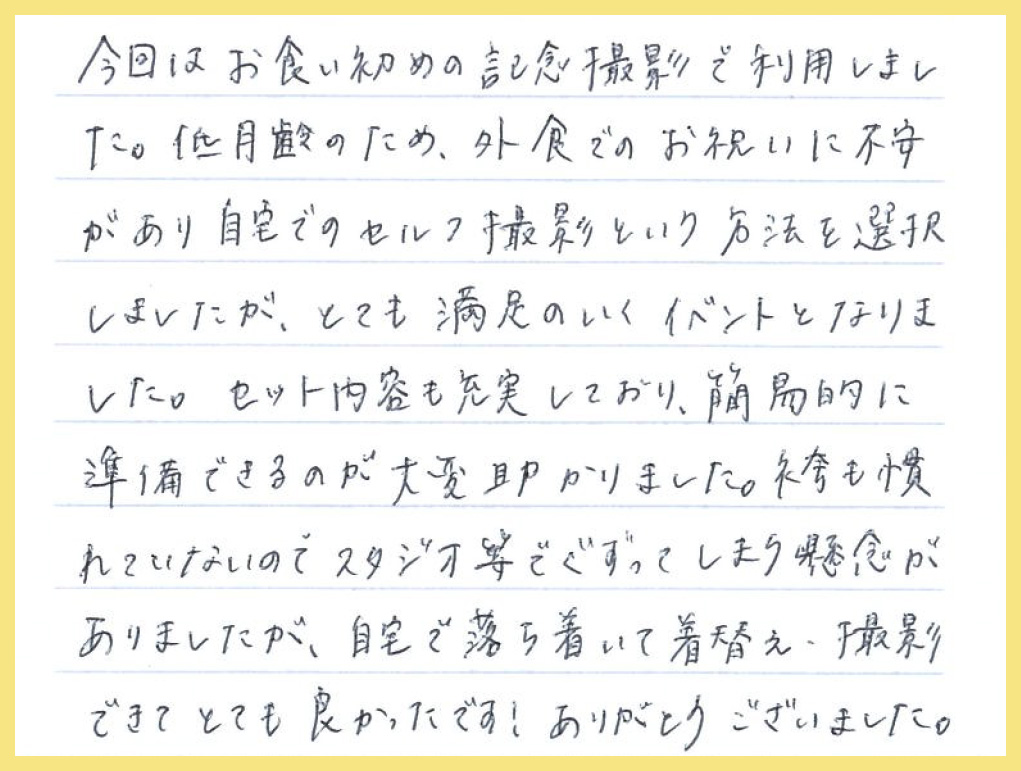 今回はお食い初めの記念撮影で利用しまし
た。低月齢のため、外食でのお祝いに不安
があり自宅でのセルフ撮影という方法を選択
しましたが、とても満足のいくイベントとなりま
した。セット内容も充実しており、簡易的に
準備できるのが大変助かりました。袴も慣
れていないのでスタジオ等でぐずってしまう懸念が
ありましたが、自宅で落ち着いて着替え・撮影
できてとても良かったです!ありがとうございました。